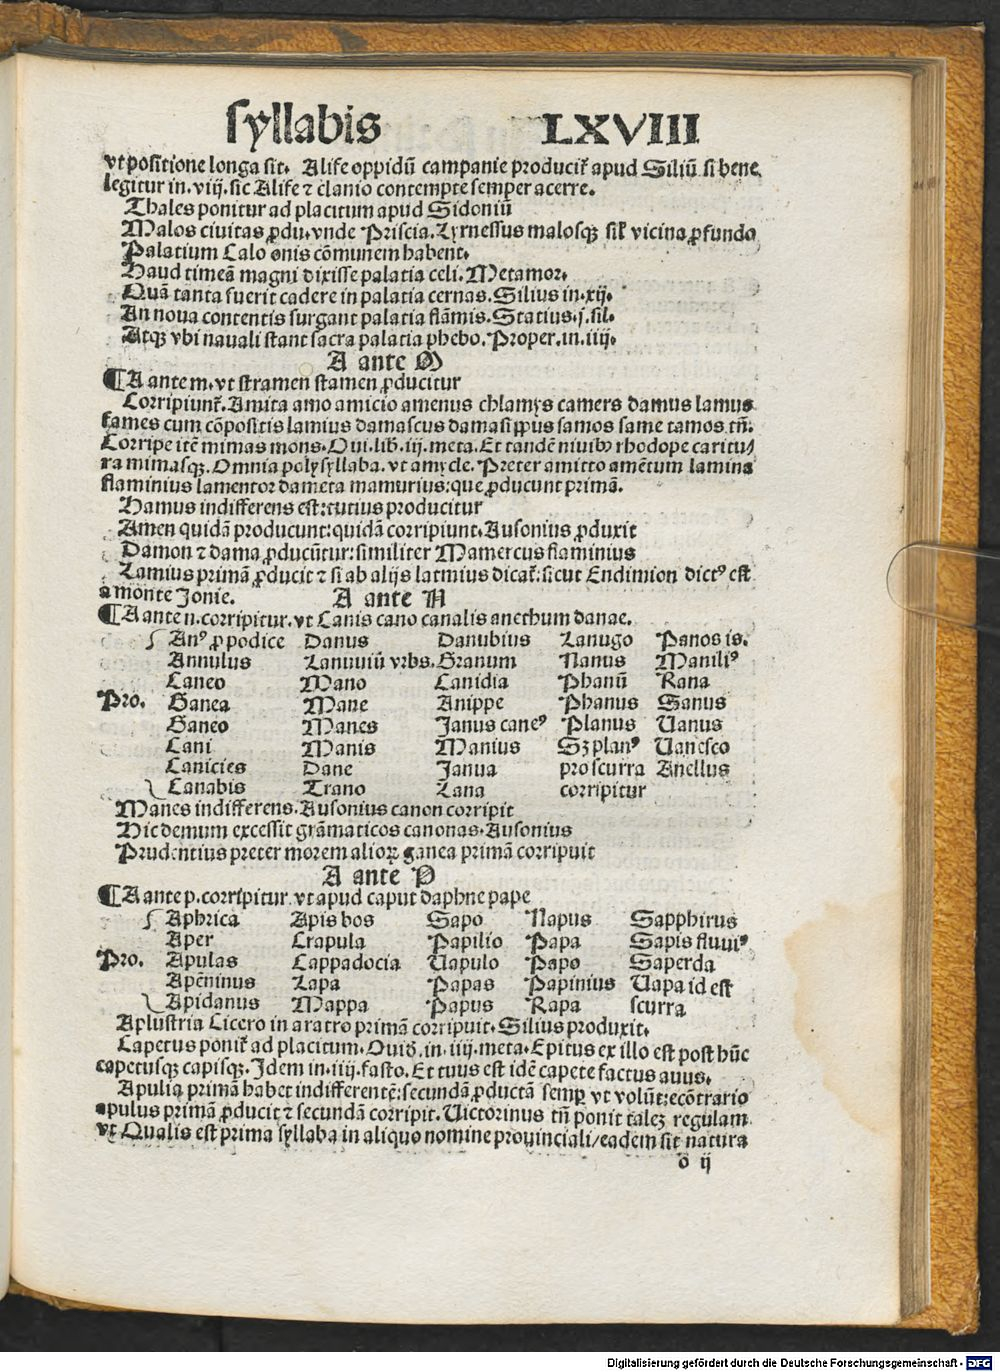 syllabis LXVIII
vt positione longa sit. Alife oppidū campanie producit̃ apud Siliū si bene
legitur in. viij. sic Alife ⁊ clanio contempte semper acerre.
Thales ponitur ad placitum apud Sidoniū
Malos ciuitas ꝓdu. vnde Priscia. Lyrnessus malosqꝫ sil̃ vicina ꝓfundo
Palatium Calo onis cōmunem habent.
Haud timeā magni dixisse palatia celi. Metamor.
Quā tanta fuerit cadere in palatia cernas. Silius in. xij.
An noua contentis surgant palatia flāmis. Statius. j. sil.
Atqꝫ vbi nauali stant sacra palatia phebo. Proper. in. iiij.
A ante M
¶ A ante m. vt stramen stamen ꝓducitur
Corripiunt̃. Amita amo amicio amenus chlamys camers damus lamus
fames cum cōpositis lamius damascus damasippus samos same tamos tñ.
Corripe itē mimas mons. Oui. lib. iij. meta. Et tandē niuibꝰ rhodope caritu/
ra mimasqꝫ. Omnia polysyllaba. vt amycle. Preter amitto amētum lamina
flaminius lamentor dameta mamurius: que ꝓducunt primā.
Hamus indifferens est: tutius producitur
Amen quidā producunt: quidā corripiunt. Ausonius ꝓduxit
Damon ⁊ dama ꝓducūtur: similiter Mamercus flaminius
Lamius primā ꝓducit ⁊ si ab alijs latmius dicat̃: sicut Endimion dictꝰ est
a monte Jonie. A ante N
¶ A ante n. corripitur. vt Canis cano canalis anethum danae.
Anꝰ ꝓ podice Danus Danubius Lanugo Panos is.
Annulus Lanuuiū vrbs. Granum Nanus Maniliꝰ
Caneo Mano Canidia Phanū Rana
Pro. Ganea Mane Anippe Phanus Sanus
Ganeo Manes Janus caneꝰ Planus Uanus
Cani Manis Manius Sꝫ planꝰ Uanesco
Canicies Dane Janua pro scurra Anellus
Canabis Trano Lana corripitur
Manes indifferens. Ausonius canon corripit
Hic demum excessit grāmaticos canonas. Ausonius
Prudentius preter morem alioꝝ ganea primā corripuit
A ante P
¶ A ante p. corripitur. vt apud caput daphne pape
Aphrica Apis bos Sapo Napus Sapphirus
Aper Crapula Papilio Papa Sapis fluuiꝰ
Pro. Apulas Cappadocia Uapulo Papo Saperda
Apēninus Lapa Papas Papinius Uapa id est
Apidanus Mappa Papus Rapa scurra
Aplustria Cicero in aratro primā corripuit. Silius produxit.
Capetus ponit̃ ad placitum. Ouid̃. in. iiij. meta. Epitus ex illo est post hūc
capetusqꝫ capisqꝫ. Idem in. iiij. fasto. Et tuus est idē capete factus auus.
Apulia primā habet indifferentē: secundā ꝓductā semꝑ vt volūt: ecōtrario
apulus primā ꝓducit ⁊ secundā corripit. Uictorinus tñ ponit taleꝫ regulam
vt Qualis est prima syllaba in aliquo nomine prouinciali/ eadem sit natura
o ij
Digitalisierung gefördert durch die Deutsche Forschungsgemeinschaft - DFG